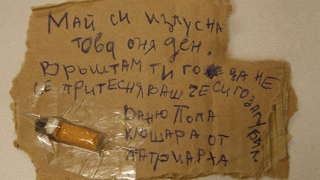 МАЙ СИ ИЗПУСНА
ТОВА ОНЯ ДЕН.
ВРЪЩАМ ТИ ГО ДА НЕ
СЕ ПРИТЕСНЯВАШ ЧЕ СИ ГО ЗАГУБИЛ
ВАНЮ ПОПА
КЛОШАРА ОТ
ПАТРИАРХА